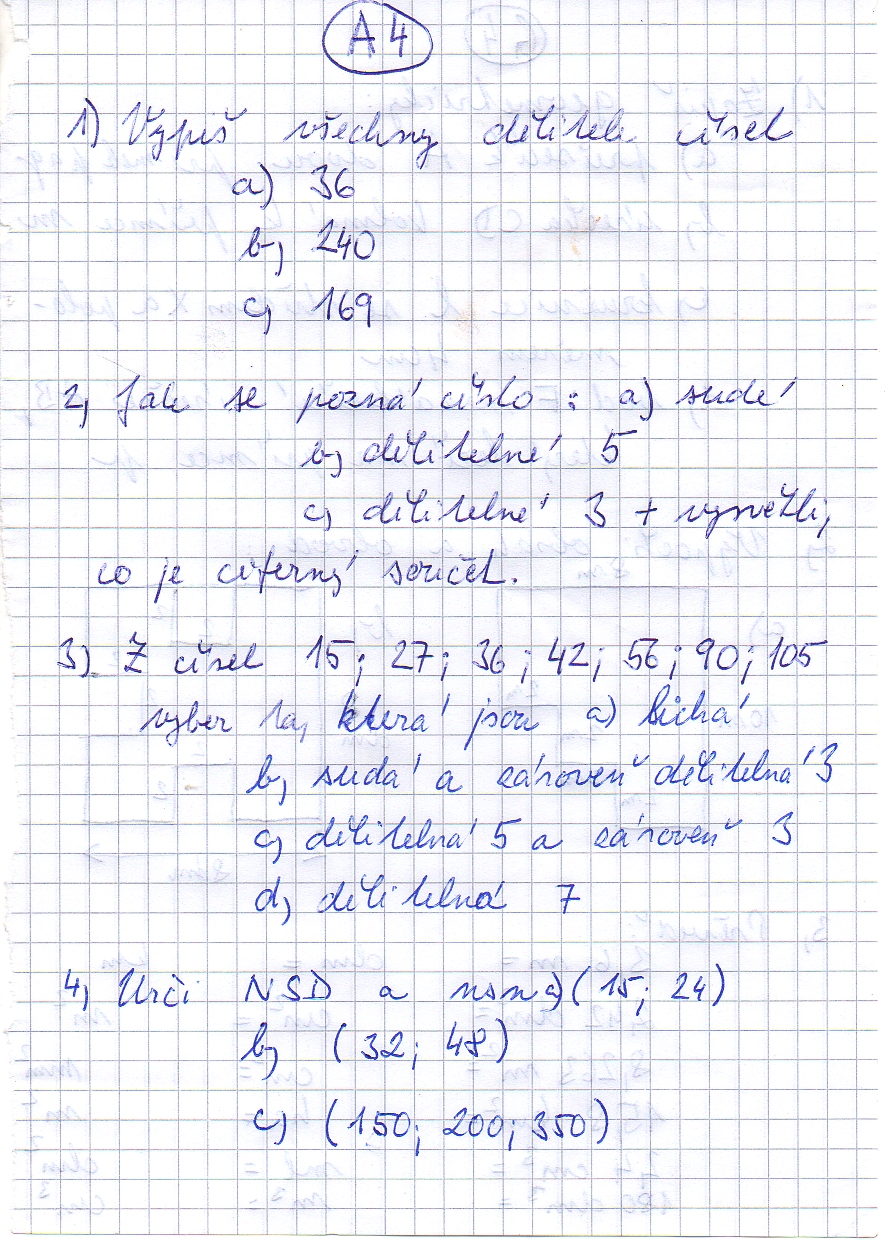 A4
1) Vypiš všechny dělitele čísel
a) 36
b) 240
c) 169
2) Jak se pozná číslo : a) sudé
b) dělitelné 5
c) dělitelné 3 + vysvětli,
co je ciferný součet.
3) Z čísel 15; 27; 36; 42; 56; 90; 105
vyber ta, která jsou a) lichá
b) sudá a zároveň dělitelná 3
c) dělitelná 5 a zároveň 3
d) dělitelná 7
4) Urči NSD a nsn a) (15; 24)
b) (32; 48)
c) (150; 200; 350)